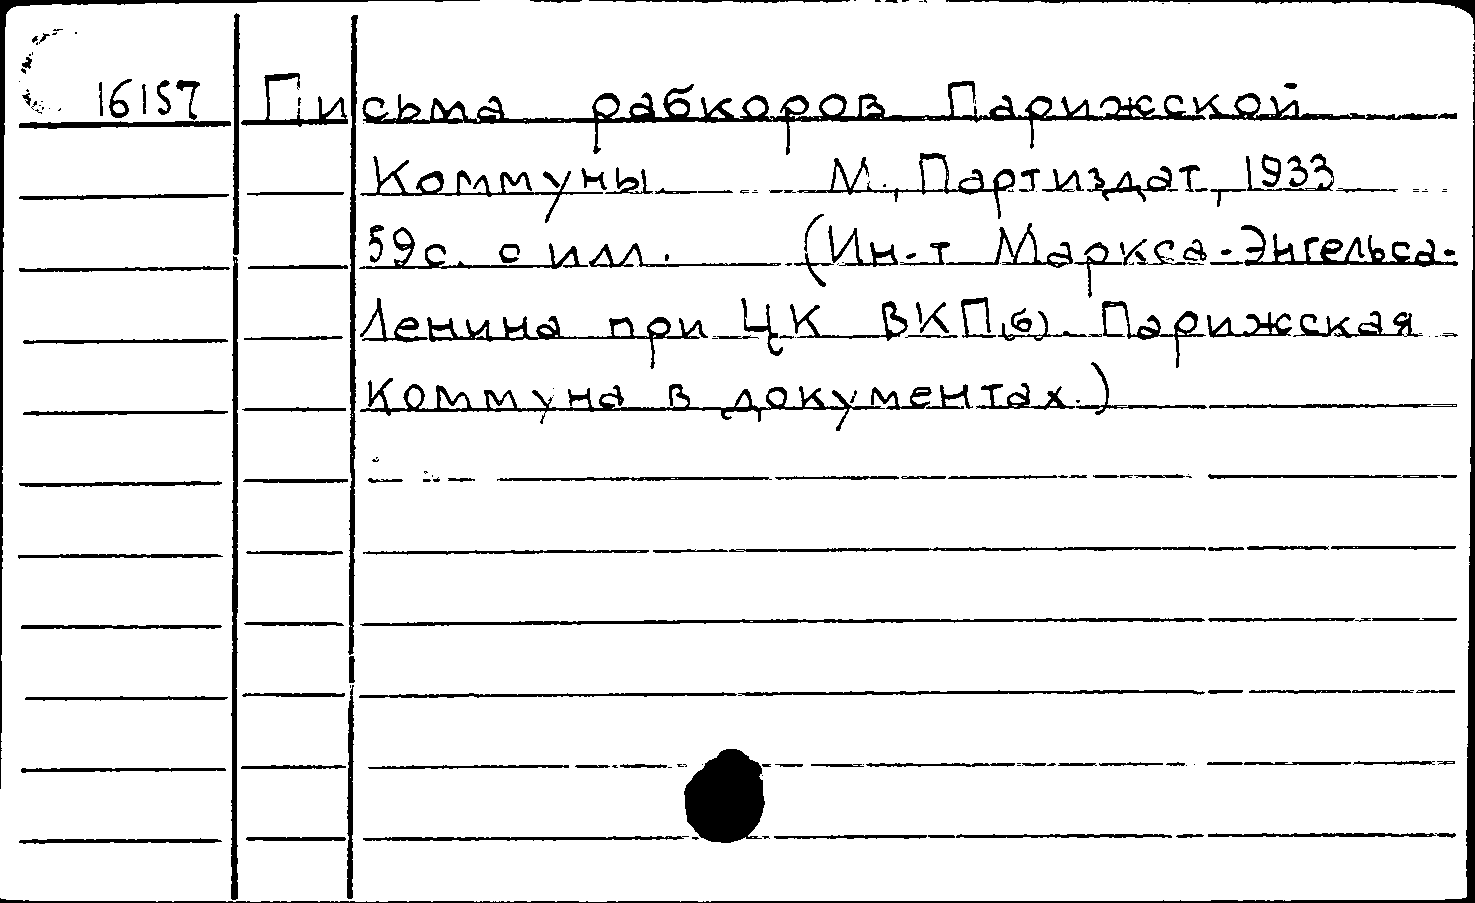 16157 Письма рабкоров Парижской
Коммуны. М., Партиздат, 1933
59с. с илл. (Ин-т Маркса-Энгельса-
Ленина при ЦК ВКП(б). Парижская
Коммуна в документах.)